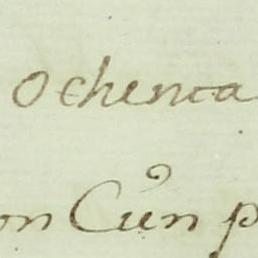 ochenta
on Cũn p